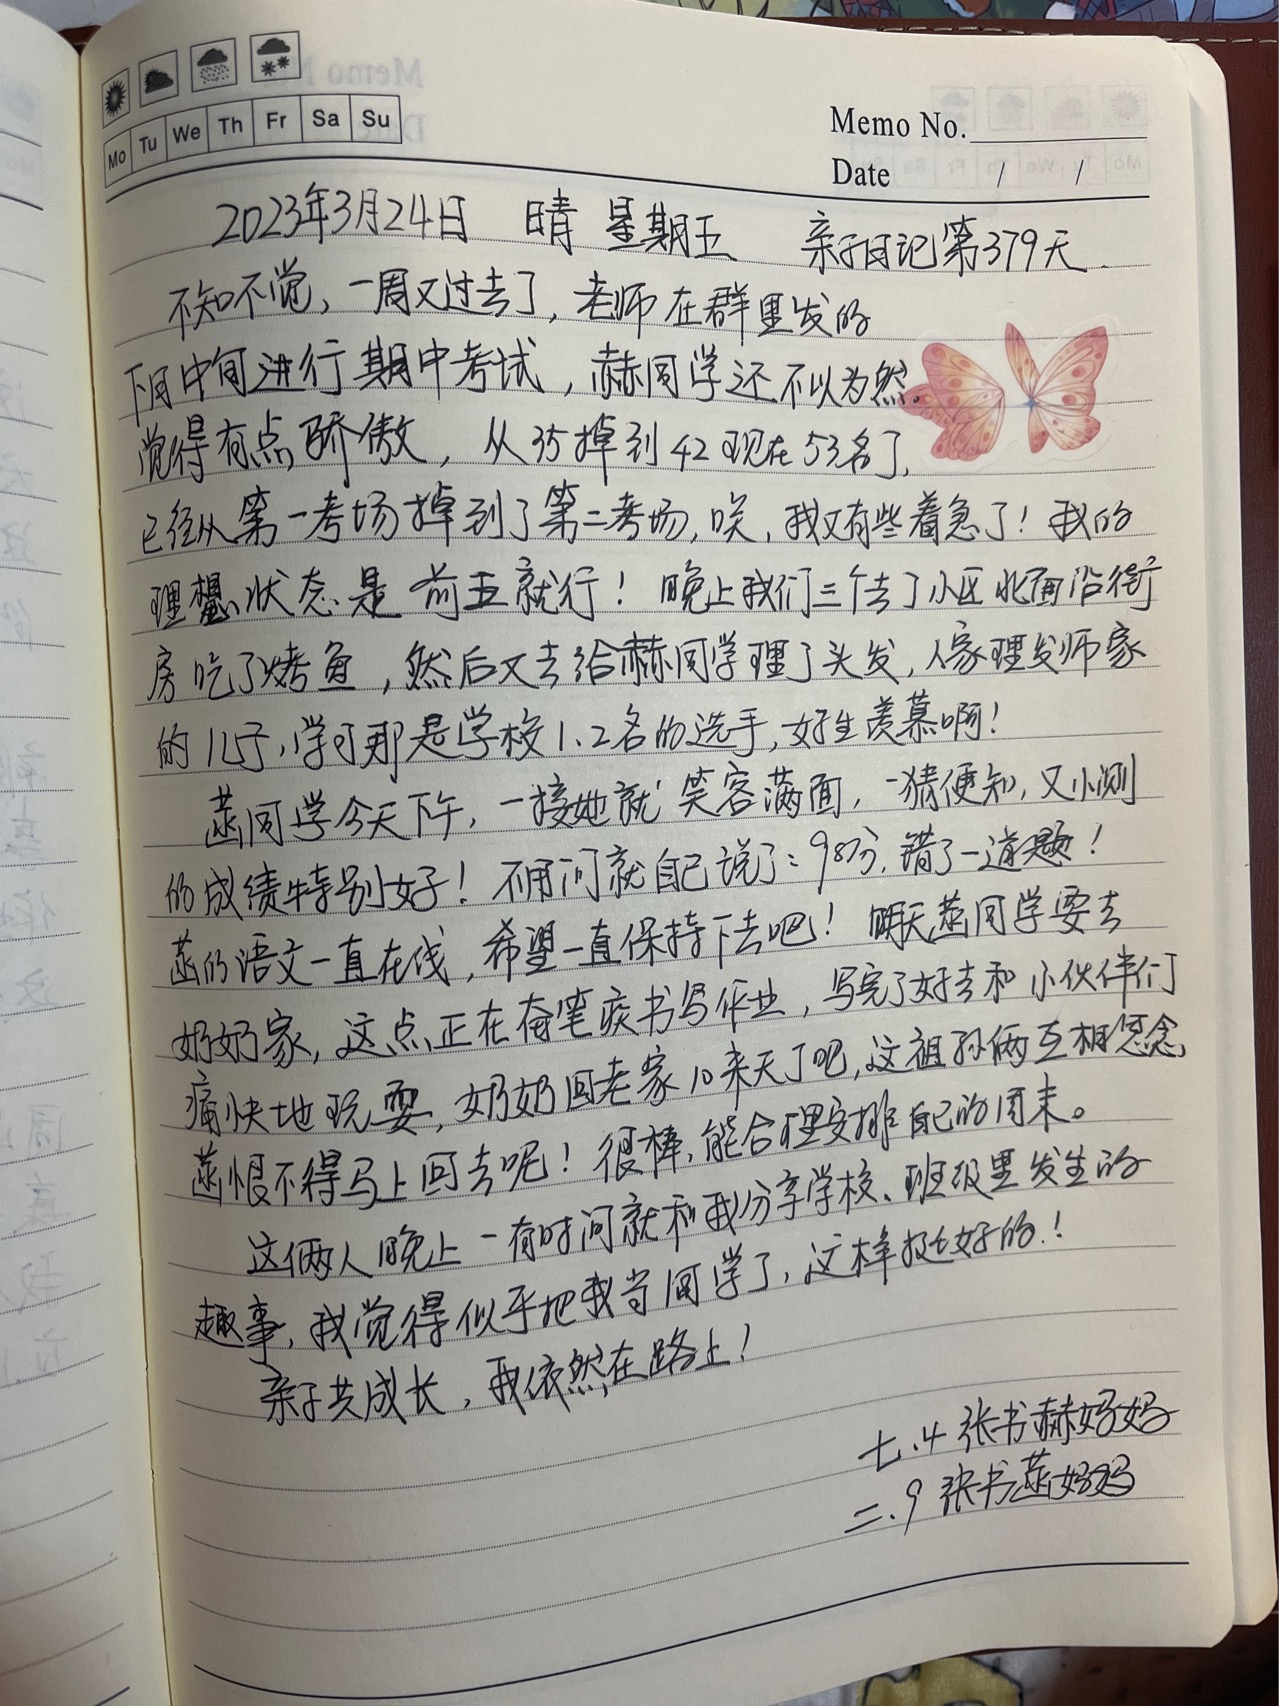 Mo Tu We Th Fr Sa Su
Memo No.
Date / /
2023年3月24日 晴 星期五 亲子日记第379天
不知不觉,一周又过去了,老师在群里发的
下月中旬进行期中考试,赫同学还不以为然。
觉得有点骄傲,从35掉到42现在53名了,
已经从第一考场掉到了第二考场,唉,我又有些着急了!我的
理想状态是前五就行!晚上我们三个去了小区北面沿街
房吃了烤鱼,然后又去给赫同学理了头发,人家理发师家
的儿子,学习那是学校1.2名的选手,好生羡慕啊!
菡同学今天下午,一接她就笑容满面,一猜便知,又小测
的成绩特别好!不用问就自己说了:98分,错了一道题!
菡的语文一直在线,希望一直保持下去吧!明天菡同学要去
奶奶家,这点正在奋笔疾书写作业,写完了好去和小伙伴们
痛快地玩耍,奶奶回老家10来天了吧,这祖孙俩互相念
菡恨不得马上回去呢!很棒,能合理安排自己的周末。
这俩人晚上一有时间就和我分享学校、班级里发生的
趣事,我觉得似乎把我当同学了,这样挺好的!
亲子共成长,我依然在路上!
七.4 张书赫妈妈
二.9 张书菡妈妈